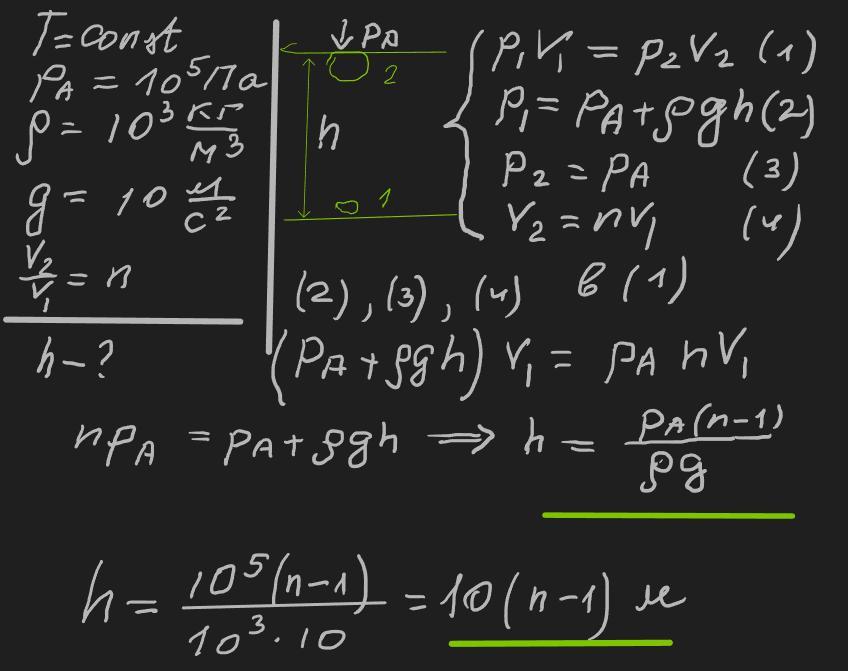 T = const
p_A = 10^5 Па
ρ = 10^3 кг/м^3
g = 10 м/с^2
V_2/V_1 = n
h - ?
↓ p_A
2
h
1
{ p_1 V_1 = p_2 V_2 (1)
p_1 = p_A + ρgh (2)
p_2 = p_A (3)
V_2 = nV_1 (4)
(2), (3), (4) в (1)
(p_A + ρgh) V_1 = p_A n V_1
n p_A = p_A + ρgh ⟹ h = p_A(n-1)/ρg
h = 10^5(n-1)/10^3 · 10 = 10(n-1) м